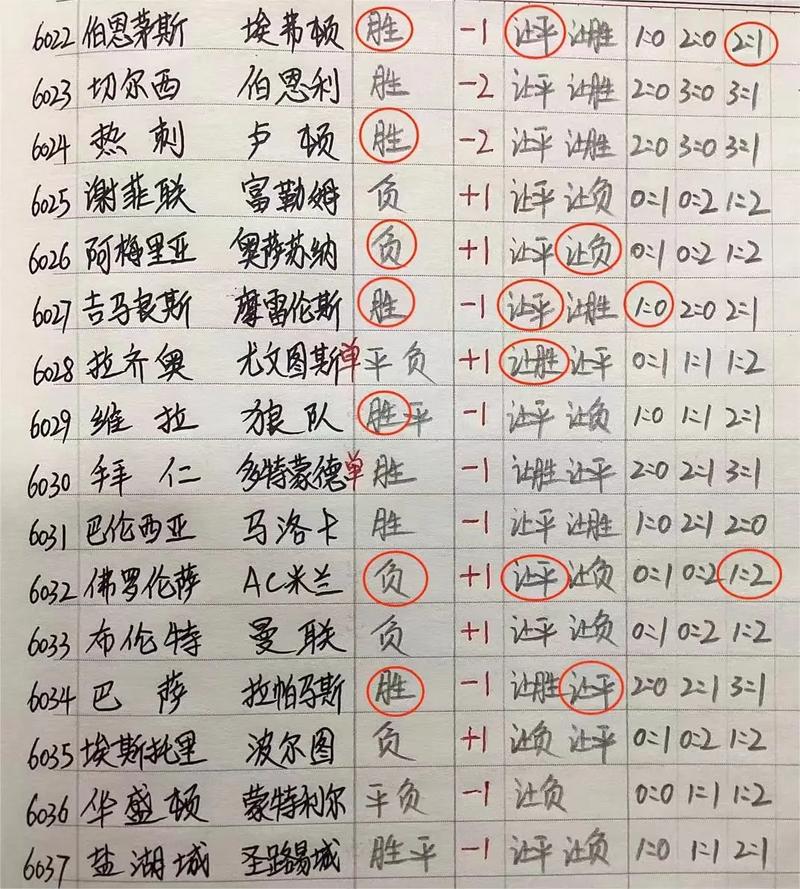 6022 伯恩茅斯 埃弗顿 胜 -1 让平 让胜 1:0 2:0 2:1
6023 切尔西 伯恩利 胜 -2 让平 让胜 2:0 3:0 3:1
6024 热刺 卢顿 胜 -2 让平 让胜 2:0 3:0 3:1
6025 谢菲联 富勒姆 负 +1 让平 让负 0:1 0:2 1:2
6026 阿梅里亚 奥萨苏纳 负 +1 让平 让负 0:1 0:2 1:2
6027 吉马良斯 摩雷伦斯 胜 -1 让平 让胜 1:0 2:0 2:1
6028 拉齐奥 尤文图斯 单 平 负 +1 让胜 让平 0:1 1:1 1:2
6029 维拉 狼队 胜 平 -1 让平 让负 1:0 1:1 2:1
6030 拜仁 多特蒙德 单 胜 -1 让胜 让平 2:0 2:1 3:1
6031 巴伦西亚 马洛卡 胜 -1 让平 让胜 1:0 2:1 2:0
6032 佛罗伦萨 AC米兰 负 +1 让平 让负 0:1 0:2 1:2
6033 布伦特 曼联 负 +1 让平 让负 0:1 0:2 1:2
6034 巴萨 拉帕马斯 胜 -1 让胜 让平 2:0 2:1 3:1
6035 埃斯托里 波尔图 负 +1 让负 让平 0:1 0:2 1:2
6036 华盛顿 蒙特利尔 平 负 -1 让负 0:0 1:1 1:2
6037 盐湖城 圣路易城 胜 平 -1 让平 让负 1:0 1:1 2:1